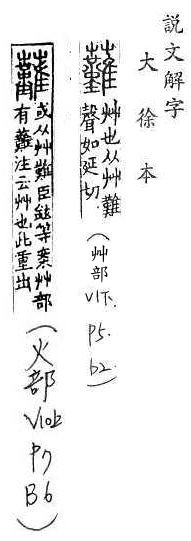 説文解字
大徐本
䕼
艸也从艸難
聲如延切
(艸部
V1下.
P5.
b2)
䕼
或从艸難臣鉉等案艸部
有䕼注云艸也此重出
(火部
V10上
P7
B6)